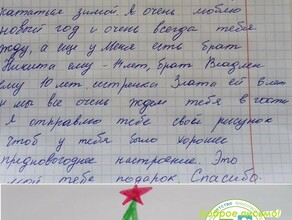 кататься зимой. я очень люблю
новый год и очень всегда тебя
жду, а еще у меня есть брат
Никита ему - 14 лет, брат Владлен
ему 10 лет, сестренка Злата ей 6 лет
и мы все очень ждем тебя в гости
Я отправлю тебе свой рисунок
чтоб у тебя было хорошее
предновогоднее настроение. Это
мой тебе подарок. Спасибо.
доброе письмо!